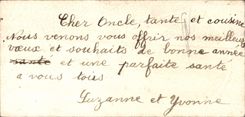 Cher Oncle, tante et cousine
Nous venons vous offrir nos meilleurs
vœux et souhaits de bonne année
santé et une parfaite santé
a vous tous
Suzanne et Yvonne